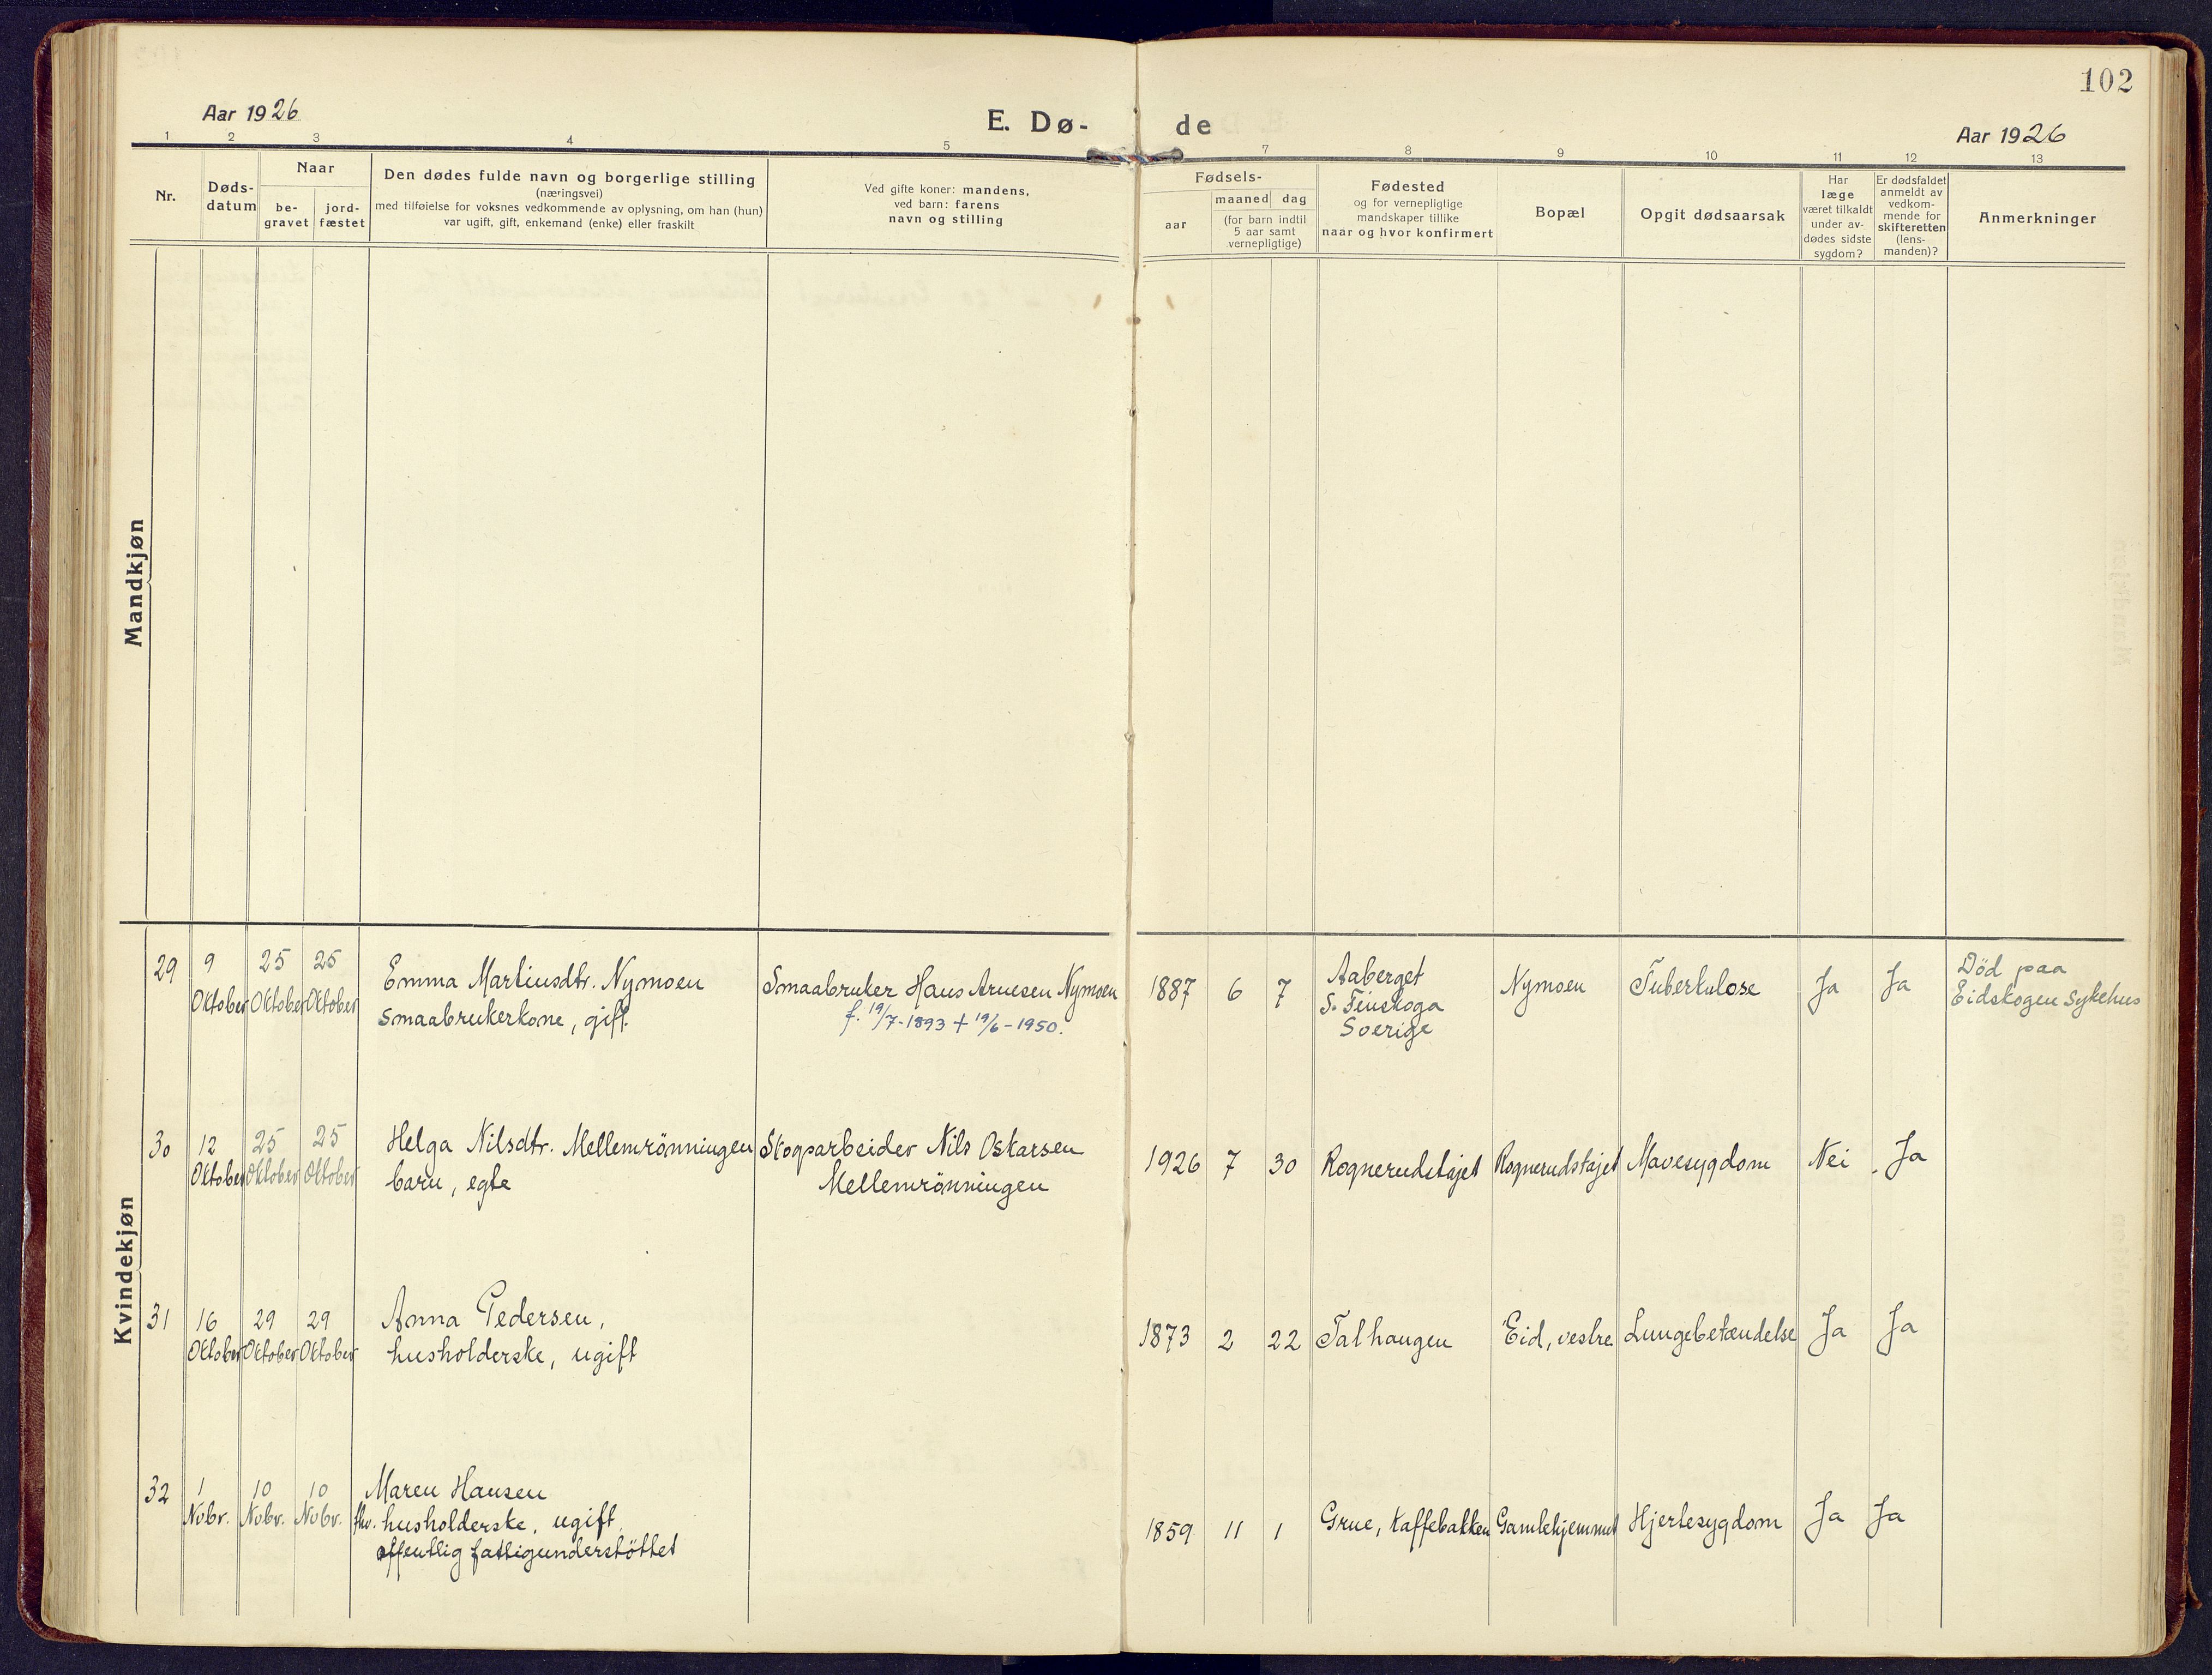 102
Aar 1926
E. Dø-
de
Aar 1926
1 2 3 4 5 7 8 9 10 11 12 13
Nr.
Døds-
datum
Naar
be-
gravet
jord-
fæstet
Den dødes fulde navn og borgerlige stilling
(næringsvei)
med tilføielse for voksnes vedkommende av oplysning, om han (hun)
var ugift, gift, enkemand (enke) eller fraskilt
Ved gifte koner: mandens,
ved barn: farens
navn og stilling
Fødsels-
aar
maaned dag
(for barn indtil
5 aar samt
vernepligtige)
Fødested
og for vernepligtige
mandskaper tillike
naar og hvor konfirmert
Bopæl
Opgit dødsaarsak
Har
læge
været tilkaldt
under av-
dødes sidste
sygdom?
Er dødsfaldet
anmeldt av
vedkom-
mende for
skifteretten
(lens-
manden)?
Anmerkninger
Mandkjøn
Kvindekjøn
29
9
Oktober
25
Oktober
25
Oktober
Emma Martinsdtr. Nymoen
smaabrukerkone, gift.
Smaabruker Hans Arnesen Nymoen
f. 19/7-1893 + 19/6-1950.
1887 6 7
Aaberget
S. Finskoga
Sverige
Nymoen
Tuberkulose
Ja
Ja
Död paa
Eidskogen sykehus
30
12
Oktober
25
Oktober
25
Oktober
Helga Nilsdtr. Mellemrönningen
barn, egte
Skogsarbeider Nils Oskarsen
Mellemrönningen
1926 7 30
Rognerudstajet
Rognerudstajet
Mavesygdom
Nei
Ja
31
16
Oktober
29
Oktober
29
Oktober
Anna Pedersen,
husholderske, ugift
1873 2 22
Talhaugen
Eid, vestre
Lungebetændelse
Ja
Ja
32
1
Nobr.
10
Nobr.
10
Nobr.
Maren Hansen
fhv. husholderske, ugift,
offentlig fattigunderstöttet
1859 11 1
Grue, Kaffebakken
Gamlehjemmet
Hjertesygdom
Ja
Ja